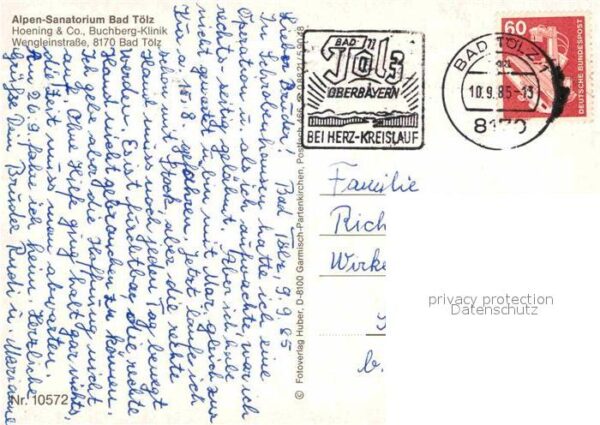 Alpen-Sanatorium Bad Tölz
Hoening & Co., Buchberg-Klinik
Wengleinstraße, 8170 Bad Tölz
Bad Tölz, 9.9.85
Lieber Bruder!
In Schrobenhausen hatte ich eine
Operation u. als ich aufwachte, war ich
rechts seitig gelähmt. Aber ich habe
nicht gewartet u. bin mit Mar. gleich zur
Kur a. 15.8. gefahren. Jetzt laufe ich
schon mit Stock, aber die rechte
Hand muss noch jeden Tag bewegt
werden. Erst furchtbar die rechte
Hand nicht gebrauchen zu können.
Ich gebe aber die Hoffnung nicht
auf. Ohne Hilfe ging halt gar nichts,
die Zeit muss man abwarten.
A. 26.9. fahre ich heim. Herzliche
Grüße Dein Bruder Rudi u. Marianne
Nr. 10572
© Fotoverlag Huber, D-8100 Garmisch-Partenkirchen, Postfach 466
BAD
Tölz
OBERBAYERN
BEI HERZ-KREISLAUF
BAD TÖLZ 1
10.9.85-13
8170
60
DEUTSCHE BUNDESPOST
Familie
Rich
Wirke
b.
privacy protection
Datenschutz